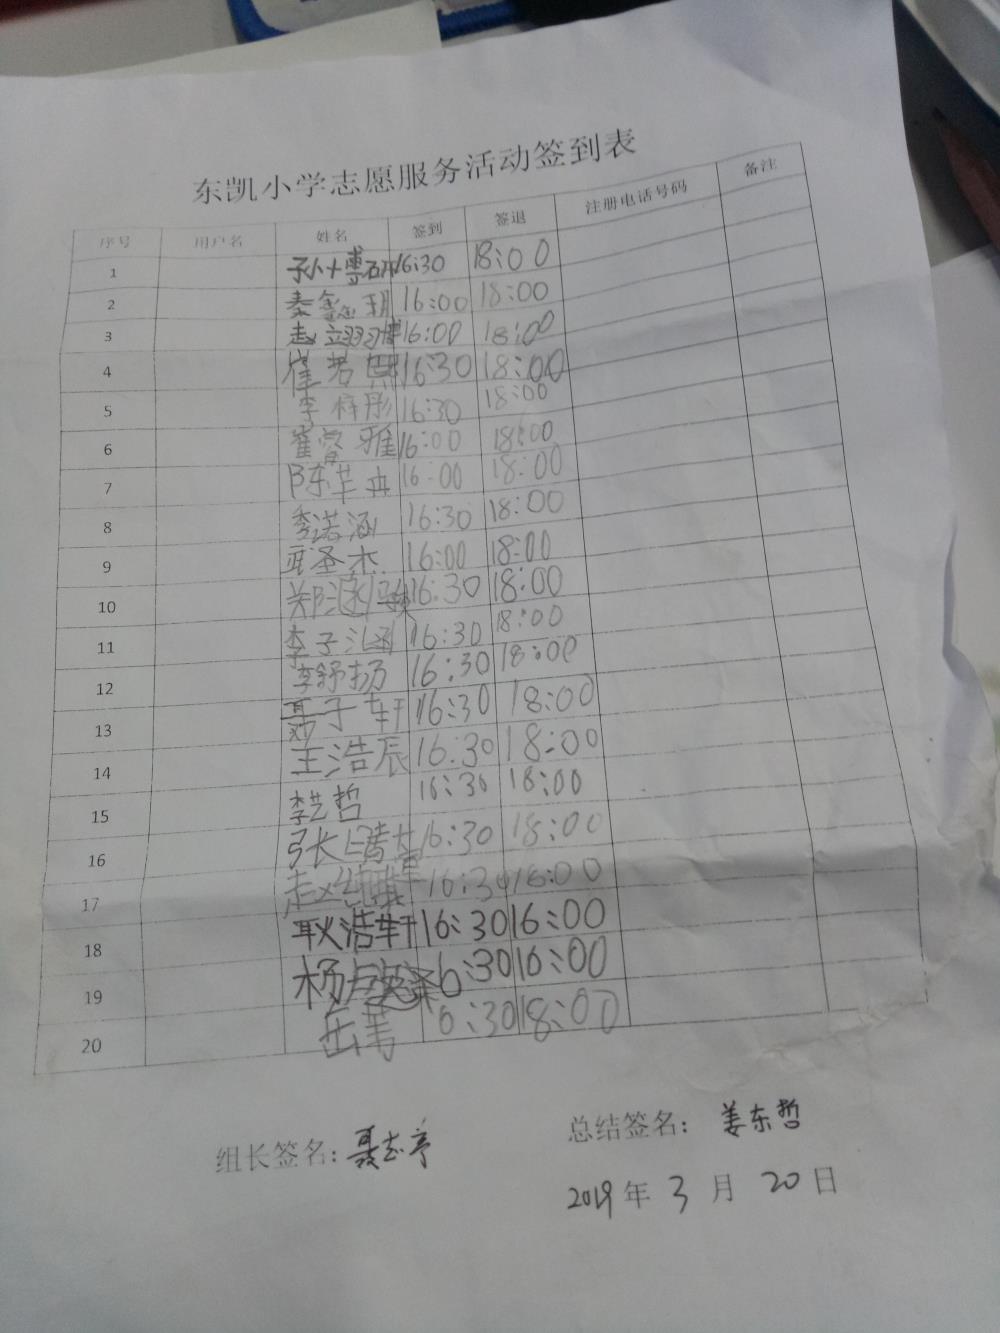 东凯小学志愿服务活动签到表
序号 用户名 姓名 签到 签退 注册电话号码 备注
1 16:30 18:00
2 秦 玥 16:00 18:00
3 赵 16:00 18:00
4 崔若熙 16:30 18:00
5 李梓彤 16:30 18:00
6 崔 雅 16:00 18:00
7 陈芊冉 16:00 18:00
8 李诺涵 16:30 18:00
9 圣杰 16:00 18:00
10 郑涵 16:30 18:00
11 李子涵 16:30 18:00
12 李舒扬 16:30 18:00
13 聂子轩 16:30 18:00
14 王浩辰 16:30 18:00
15 李艺哲 16:30 18:00
16 张 16:30 18:00
17 赵纯 16:30 16:00
18 耿浩轩 16:30 16:00
19 杨 6:30 16:00
20 岳 6:30 18:00
组长签名: 聂志亭 总结签名: 姜东哲
2019年3月20日